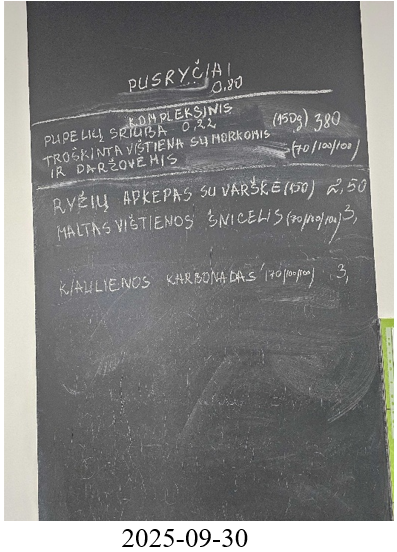 PUSRYČIAI
0,80
KOMPLEKSINIS
PUPELIŲ SRIUBA 0,22 (150g) 380
TROŠKINTA VIŠTIENA SU MORKOMIS
IR DARŽOVĖMIS (70/100/100)
RYŽIŲ APKEPAS SU VARŠKĖ (150) 2,50
MALTAS VIŠTIENOS ŠNICELIS (70/100/100) 3,
KIAULIENOS KARBONADAS (70/100/100) 3,
2025-09-30